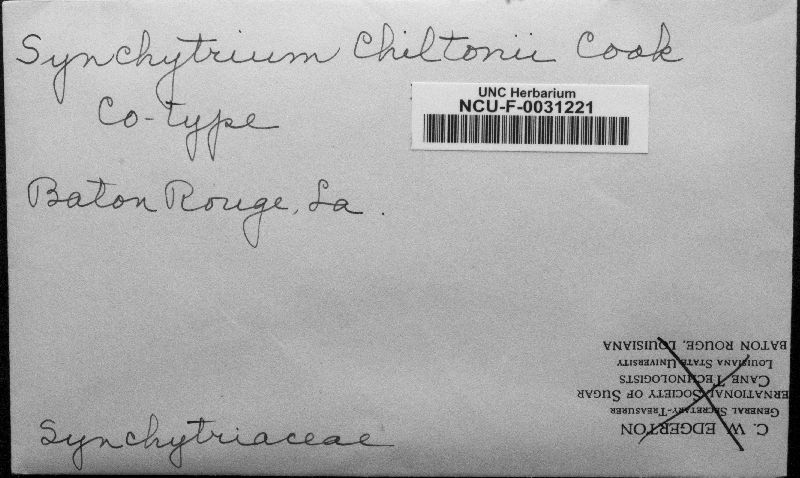 Synchytrium Chiltonii Cook
Co-type
UNC Herbarium
NCU-F-0031221
Baton Rouge, La.
Synchytriaceae
C. W. EDGERTON
GENERAL SECRETARY-TREASURER
ERNATIONAL SOCIETY OF SUGAR
CANE TECHNOLOGISTS
LOUISIANA STATE UNIVERSITY
BATON ROUGE, LOUISIANA